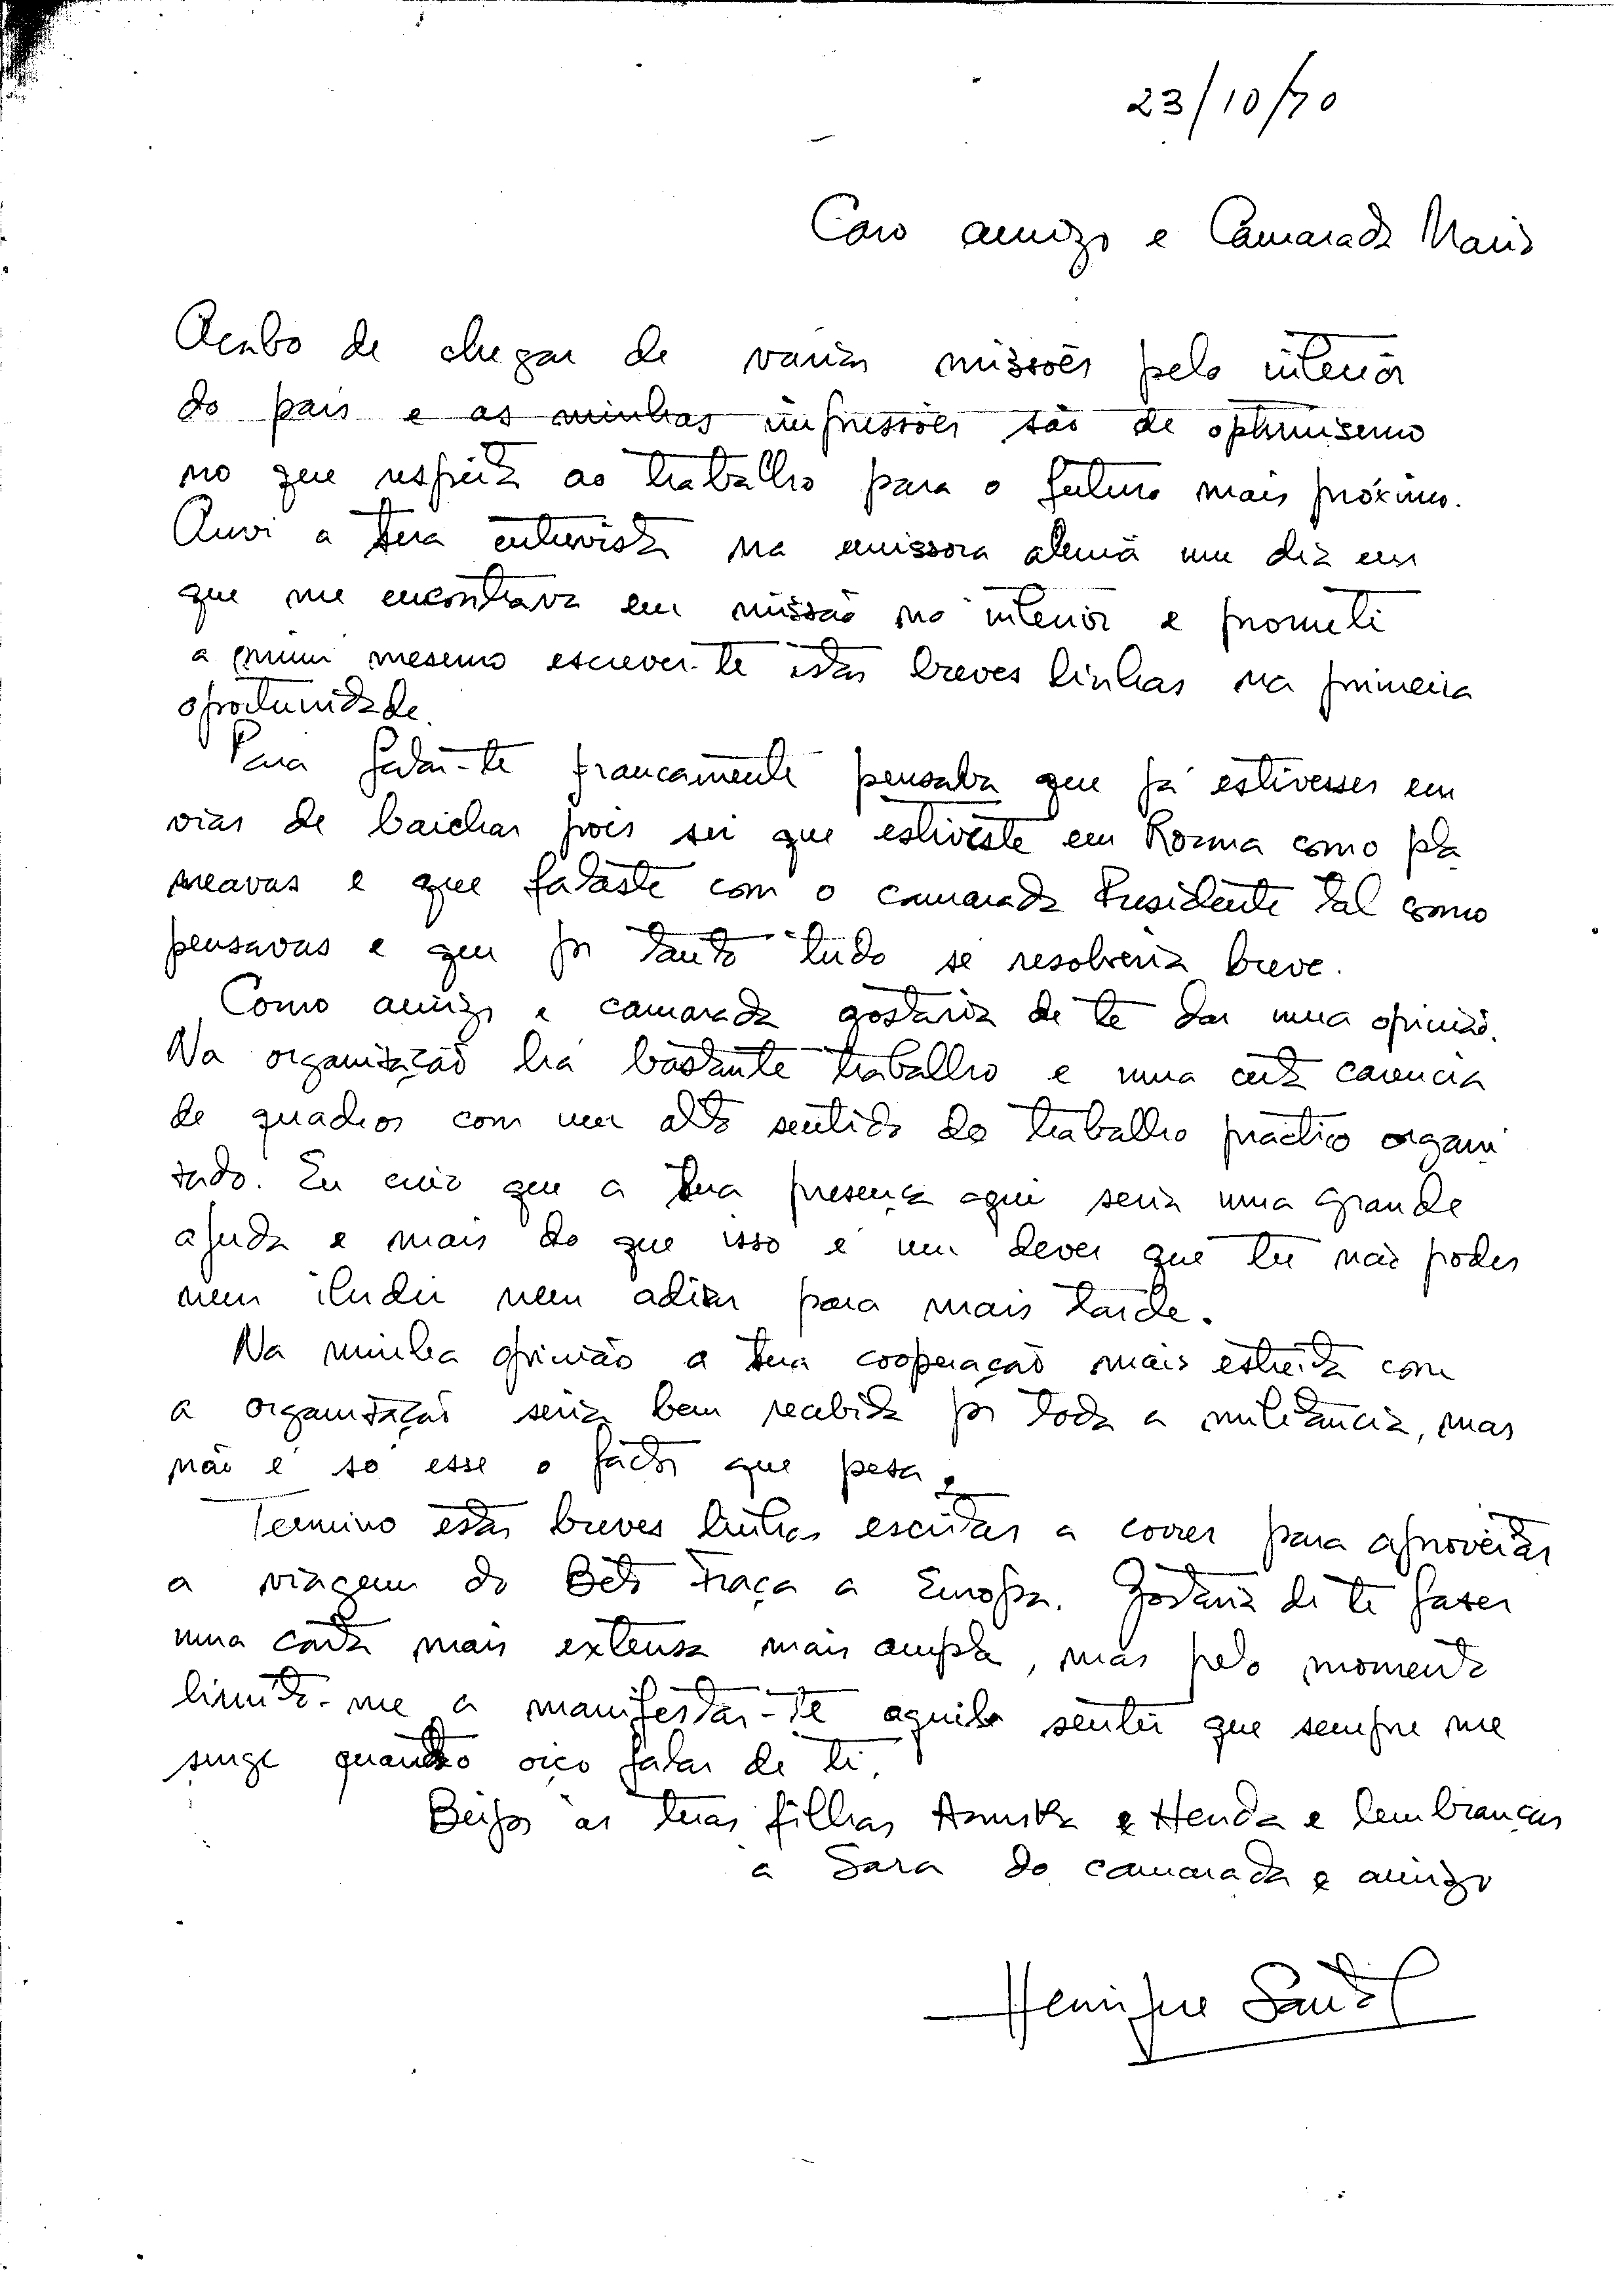 23/10/70
Caro amigo e Camarada Mario
Acabo de chegar de varias missões pelo interior
do pais e as minhas impressões são de optimismo
no que respeita ao trabalho para o futuro mais próximo.
Ouvi a tua entrevista na emissora alemã um dia em
que me encontrava em missão no interior e prometi
a mim mesmo escrever-te estas breves linhas na primeira
oportunidade.
Para falar-te francamente pensaba que já estivesses em
vias de baichar pois sei que estiveste em Roma como pla
neavas e que falaste com o camarada Presidente tal como
pensavas e que por tanto tudo se resolveria breve.
Como amigo e camarada gostaria de te dar uma opinião.
Na organização há bastante traballio e uma certa carencia
de quadros com um alto sentido do traballio práctico organi
zado. Eu creio que a tua presença aqui seria uma grande
ajuda e mais do que isso é um dever que tu não podes
nem iludir nem adiar para mais tarde.
Na minha opinião a tua cooperação mais estreita com
a organização seria bem recebida por toda a militância, mas
não é só esse o factor que pesa.
Termino estas breves linhas escritas a correr para aproveitar
a viagem do Beto Traça a Europa. Gostaria de te fazer
uma carta mais extensa mais ampla, mas pelo momento
limito-me a manifestar-te aquilo sentir que sempre me
surge quando oiço falar de ti.
Beijos às tuas filhas Annika e Henda e lembranças
a Sara do camarada e amigo
Henrique Santos